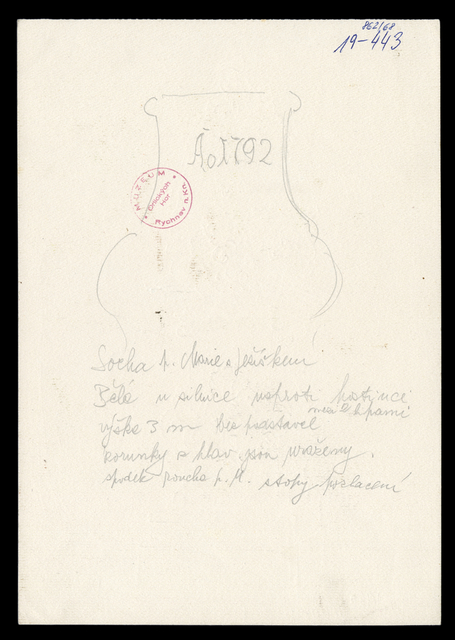 862/68
19-443
Ão1792
MUZEUM
Orlických
Hor
Rychnov n. Kn.
Socha p. Marie s Ježíškem
Bělé u silnice naproti hostinci
mezi lipami
výška 3 m bez podstavce
korunky s hlav jsou uraženy.
spodek roucha p. M. stopy pozlacení